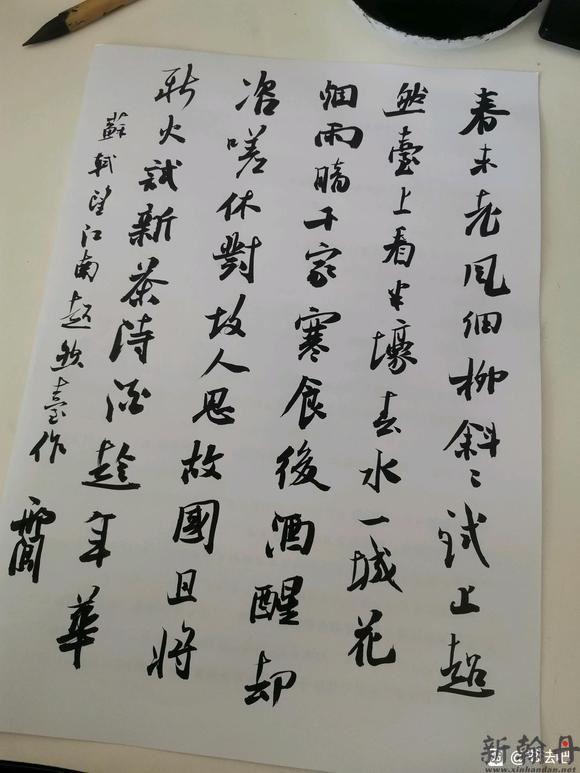 春未老风细柳斜〻試上超
然臺上看半壕春水一城花
烟雨暗千家寒食後酒醒却
咨嗟休對故人思故國且将
新火試新茶詩酒趁年華
蘇軾望江南超然臺作
新翰丹
www.xinhandan.net